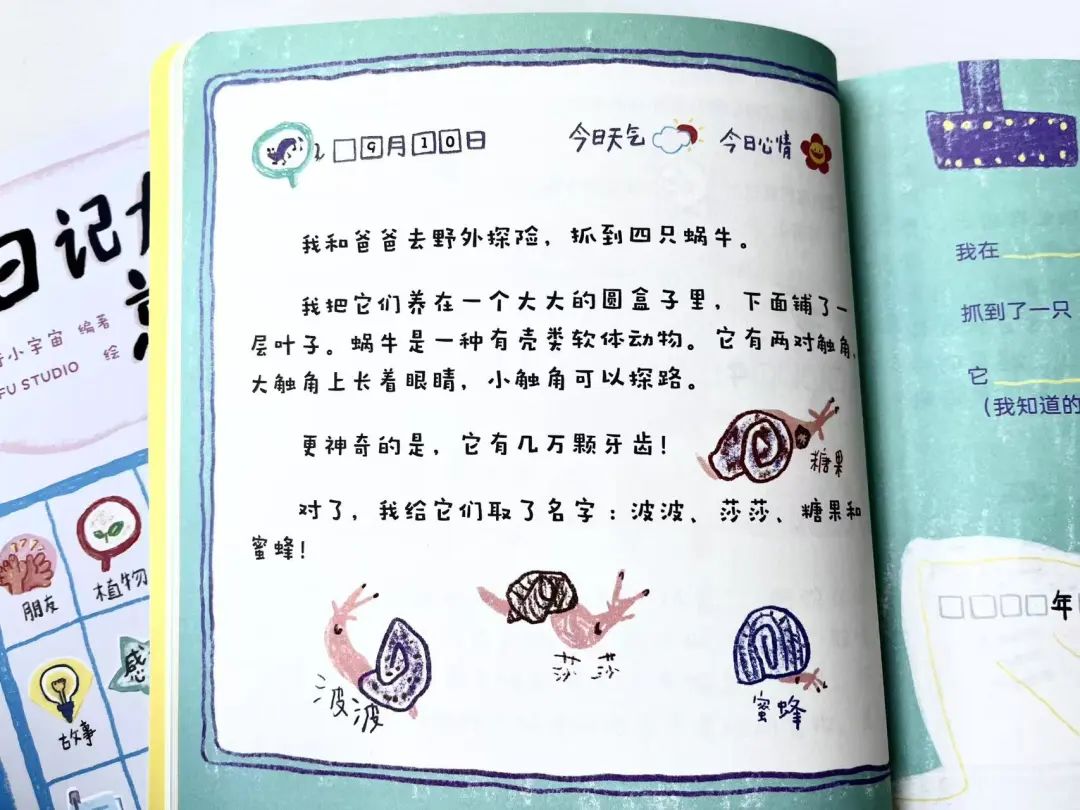 日记
小宇宙 编著
FU STUDIO 绘
朋友
植物
故事
感
9月10日 今日天气 今日心情
我和爸爸去野外探险，抓到四只蜗牛。
我把它们养在一个大大的圆盒子里，下面铺了一
层叶子。蜗牛是一种有壳类软体动物。它有两对触角，
大触角上长着眼睛，小触角可以探路。
更神奇的是，它有几万颗牙齿！
糖果
对了，我给它们取了名字：波波、莎莎、糖果和
蜜蜂！
波波
莎莎
蜜蜂
我在
抓到了一只
它
（我知道的
年